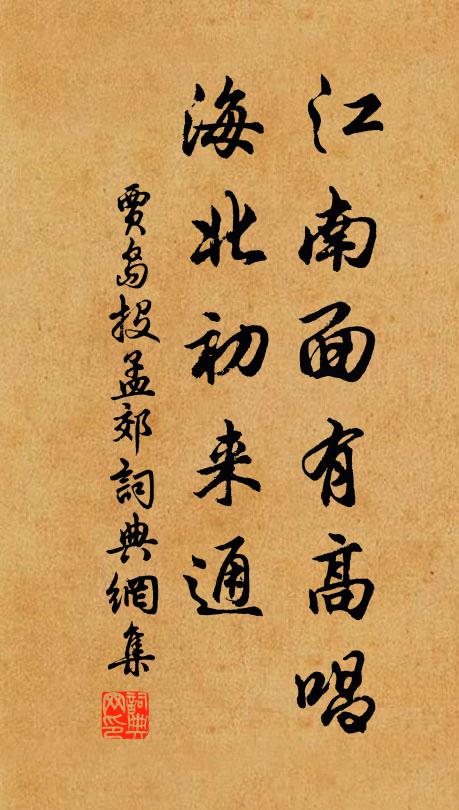 江南面有高唱
海北初来通
賈島投孟郊詞典網集
詞典网印